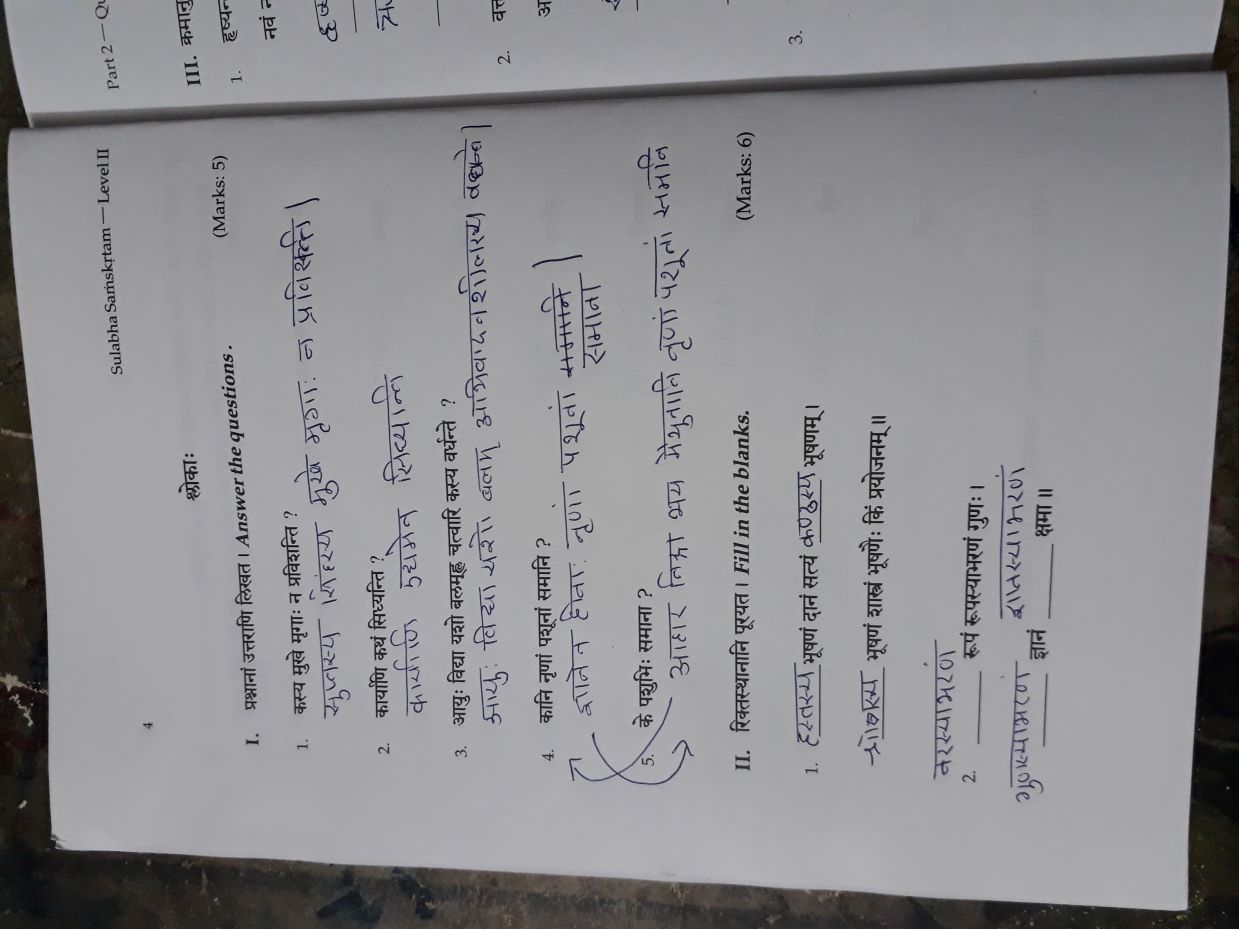 Sulabha Saṁskṛtam — Level II
4
श्लोकाः
I. प्रश्नानां उत्तराणि लिखत । Answer the questions . (Marks: 5)
1. कस्य मुखे मृगाः न प्रविशन्ति ?
सुप्तस्य सिंहस्य मुखे मृगाः न
2. कार्याणि कथं सिध्यन्ति ?
कार्याणि उद्यमेन सिध्यान्ति
3. आयुः विद्या यशो बलमूह्न चत्वारि कस्य वर्धन्ते ?
आयुः विद्या यशो बलम् अभिवादनशीलस्य
4. कानि नृणां पशूनां समानि ?
ज्ञानेन हीनाः नृणां पशूनां समानि |
समाना
5. के पशुभिः समाना ?
आहार निद्रा भय मैथुनानि नृणां पशूनां समानि
II. रिक्तस्थानानि पूरयत । Fill in the blanks. (Marks: 6)
1. हस्तस्य भूषणं दानं सत्यं कण्ठस्य भूषणम् ।
भूषणं शास्त्रं भूषणैः किं प्रयोजनम् ॥
नरस्याभरणं
2. ______ रूपं रूपस्याभरणं गुणः ।
गुणस्याभरणं ज्ञानस्याभरणं
______ ज्ञानं ______ क्षमा ॥
Part 2 —
III.
1.
2.
3.